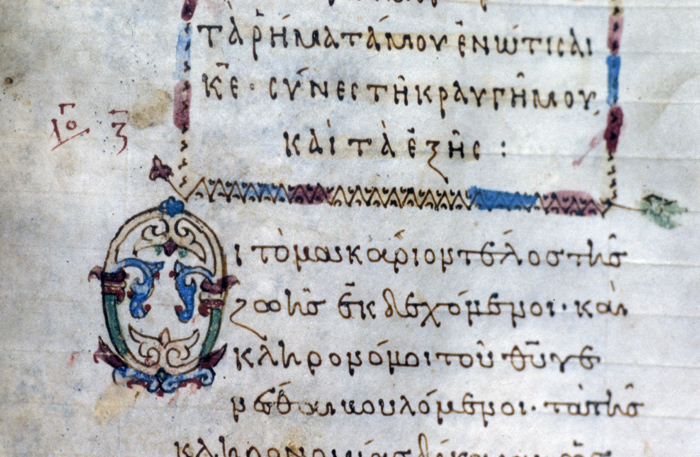 τὰ ῥήματά μου ἐνώτισαι
κ̅ε̅· σύνες τῆ κραυγῆ μου
καὶ τὰ ἑξῆς :
Οἱ τὸ μακάριον τέλος τῆς
ζωῆς ἐκδεχόμενοι· καὶ
κληρονόμοι τοῦ θ̅υ̅ γε
νέσθαι βουλόμενοι· τὰ τῆς